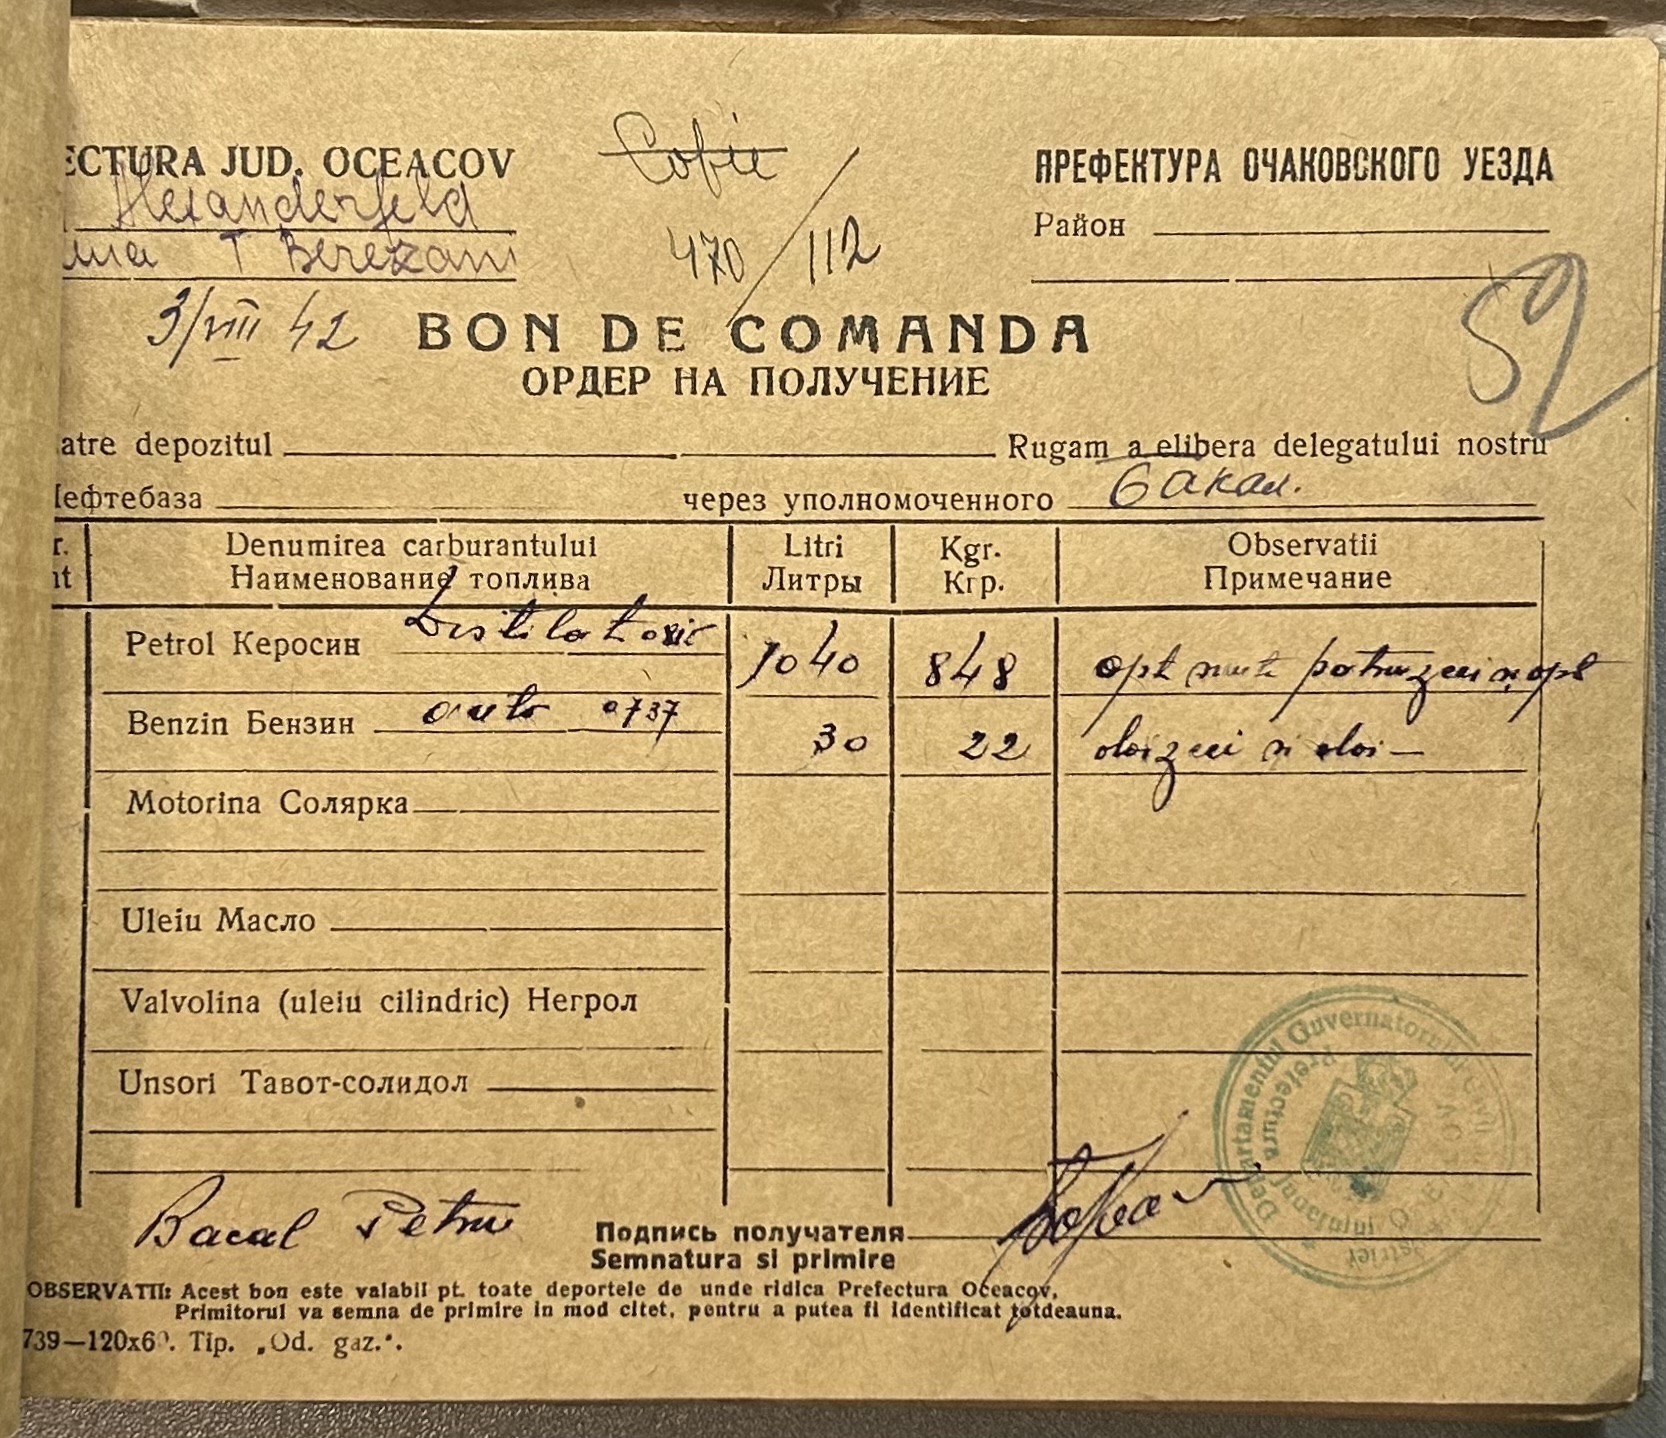 ECTURA JUD. OCEACOV
Alexanderfeld
T Berezani
Cofie
470/112
ПРЕФЕКТУРА ОЧАКОВСКОГО УЕЗДА
Район
52
3/VIII 42
BON DE COMANDA
ОРДЕР НА ПОЛУЧЕНИЕ
atre depozitul Rugam a elibera delegatului nostru
Нефтебаза через уполномоченного Бакал.
r. Denumirea carburantului Litri Kgr. Observatii
nt Наименование топлива Литры Кгр. Примечание
Petrol Керосин 1040 848 opt sute patruzeci si opt
Benzin Бензин auto 0737 30 22 doizeci si doi —
Motorina Солярка
Uleiu Масло
Valvolina (uleiu cilindric) Негрол
Unsori Тавот-солидол
Bacal Petru
Подпись получателя
Semnatura si primire
Departamentul Guvernatorului Civil
Prefectura Judetului
OBSERVATII: Acest bon este valabil pt. toate deportele de unde ridica Prefectura Oceacov,
Primitorul va semna de primire in mod citet, pentru a putea fi identificat totdeauna.
739—120x60. Tip. „Od. gaz.".